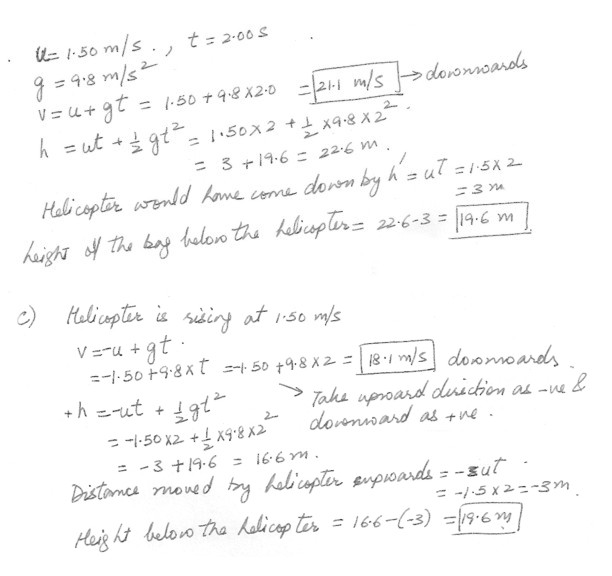 u = 1.50 m/s ., t = 2.00 s .
g = 9.8 m/s²
v = u + gt = 1.50 + 9.8 x 2.0 = 21.1 m/s → downwards
h = ut + ½ gt² = 1.50 x 2 + ½ x 9.8 x 2² .
= 3 + 19.6 = 22.6 m .
Helicopter would have come down by h' = uT = 1.5 x 2
= 3 m
height of the bag below the helicopter = 22.6 - 3 = 19.6 m
c) Helicopter is rising at 1.50 m/s
v = -u + gt .
= -1.50 + 9.8 x t = -1.50 + 9.8 x 2 = 18.1 m/s downwards .
+h = -ut + ½ gt² → Take upward direction as -ve &
= -1.50 x 2 + ½ x 9.8 x 2² downward as +ve .
= -3 + 19.6 = 16.6 m .
Distance moved by helicopter upwards = - ut
= -1.5 x 2 = -3 m .
Height below the helicopter = 16.6 - (-3) = 19.6 m